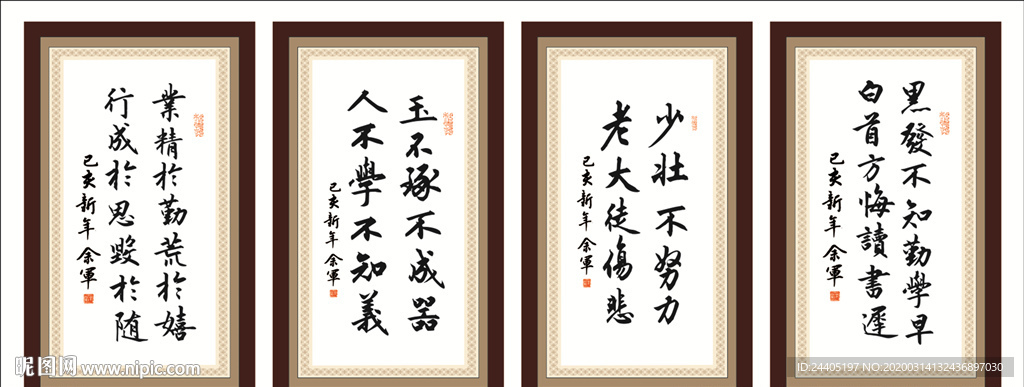 業精於勤荒於嬉
行成於思毀於随
己亥新年 余軍
玉不琢不成器
人不學不知義
己亥新年 余軍
少壯不努力
老大徒傷悲
己亥新年 余軍
黑發不知勤學早
白首方悔讀書遲
己亥新年 余軍
昵图网 www.nipic.com
ID:24405197 NO:20200314132436897030